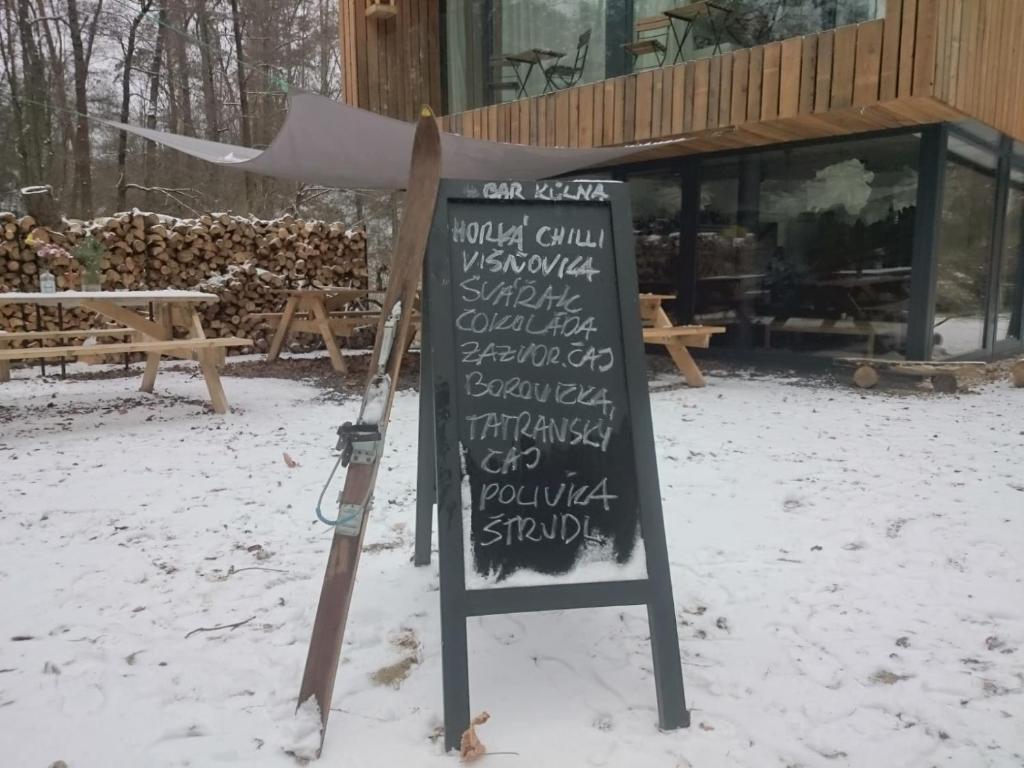 BAR KŮLNA
HORKÁ CHILLI
VIŠŇOVKA
SVAŘÁK
ČOKOLÁDA
ZÁZVOR.ČAJ
BOROVIČKA,
TATRANSKÝ
ČAJ
POLÍVKA
ŠTRÚDL